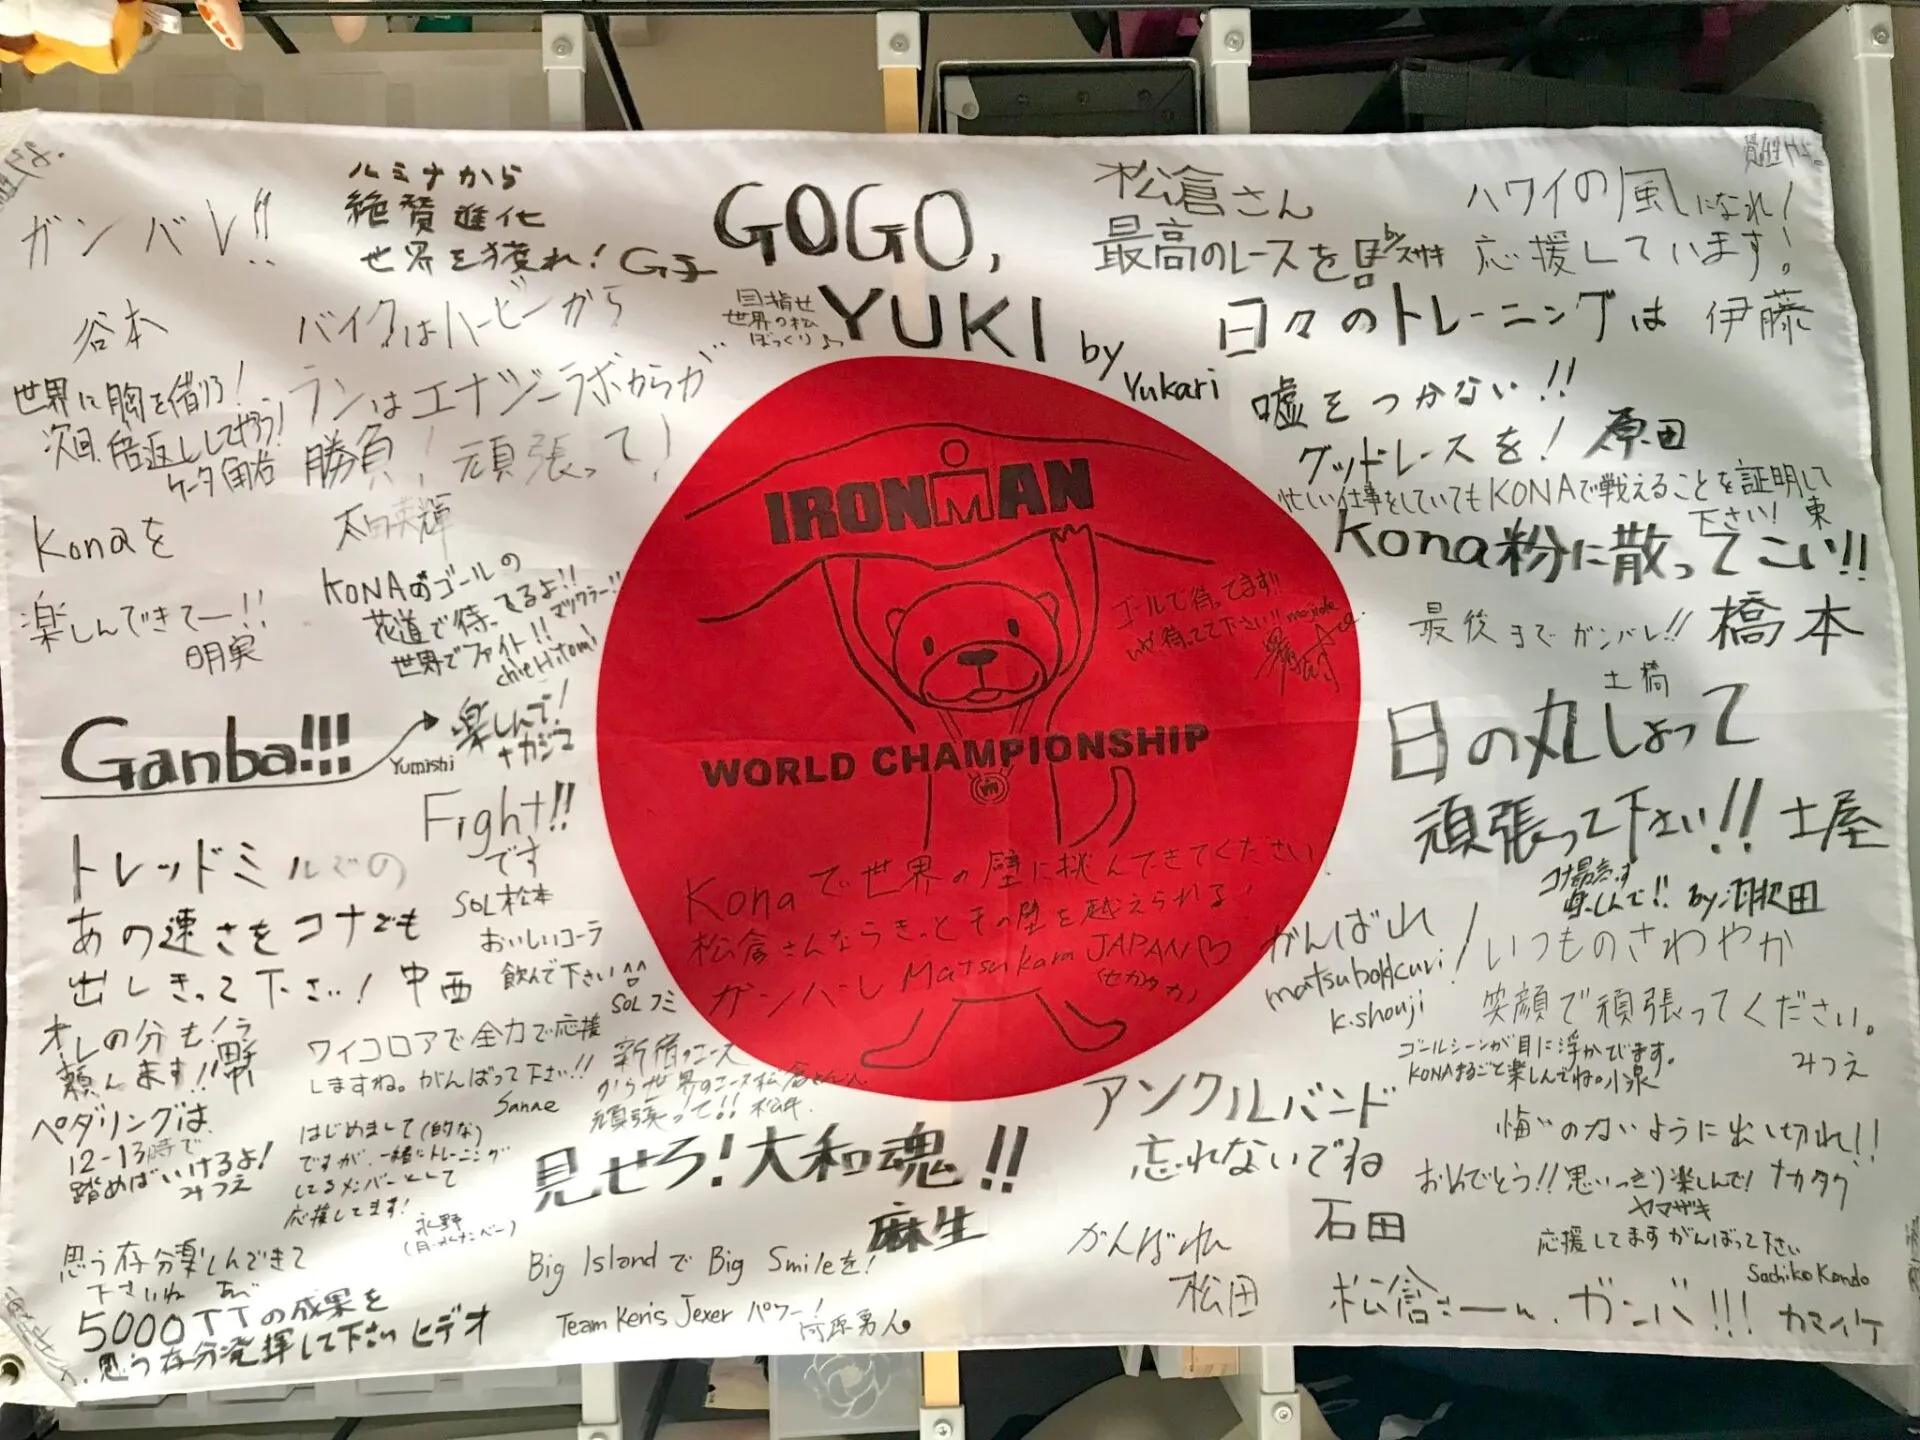 ガンバレ!!
谷本
ルミナから
絶賛進化
世界を獲れ!
GOGO,
YUKI
by
Yukari
目指せ
世界の松
ぼっくり
松倉さん
最高のレースを
ハワイの風になれ!
応援しています!
伊藤
バイクはハービーから
ランはエナジーラボからが
勝負!頑張って!
世界に胸を借りろ!
次回、倍返ししてやろう!
ケータ
日々のトレーニングは
嘘をつかない!!
グッドレースを!原田
忙しい仕事をしていてもKONAで戦えることを証明して
下さい! 東
Kona粉に散ってこい!!
橋本
最後までガンバレ!!
土橋
Konaを
楽しんできてー!!
明実
KONAのゴールの
花道で待ってるよ!!
世界でファイト!!マックラー!!
chieHitomi
IRONMAN
WORLD CHAMPIONSHIP
ゴールで待ってます!!
Ganba!!!
Yumishi
楽しんで!
ナカジマ
日の丸しょって
頑張って下さい!! 土屋
Fight!!
です
SOL松本
トレッドミルでの
あの速さをコナでも
出しきって下さい! 中西
おいしいコーラ
飲んで下さい^^
SOLフミ
Konaで世界の壁に挑んできてください!
松倉さんならきっとその壁を越えられる!
ガンバレ Matsukara JAPAN♡
がんばれ!
matsubokkuri
K.shouji
コナ最高です
楽しんで!!
いつものさわやか
笑顔で頑張ってください。
みつえ
ゴールシーンが目に浮かびます。
KONAまるごと楽しんでね。小泉
オレの分も
頼んます!!
ワイコロアで全力で応援
しますね。がんばって下さい!!
Sanae
新宿のエース
から世界のエース松倉さんへ
頑張って!!
ペダリングは、
12-13時で
踏めばいけるよ!
みつえ
はじめまして(的な)
ですが、一緒にトレーニング
してるメンバーとして
応援してます!
見せろ!大和魂!!
麻生
アンクルバンド
忘れないでね
石田
悔いのないように出し切れ!!
おめでとう!!思いっきり楽しんで!ナカタク
ヤマザキ
応援してますがんばって下さい
Sachiko Kondo
思う存分楽しんできて
下さいね
5000TTの成果を
思う存分発揮して下さい ヒデオ
Big IslandでBig Smileを!
Team Ken's Jexerパワー!
がんばれ
松田
松倉さーん、ガンバ!!!
カマイケ